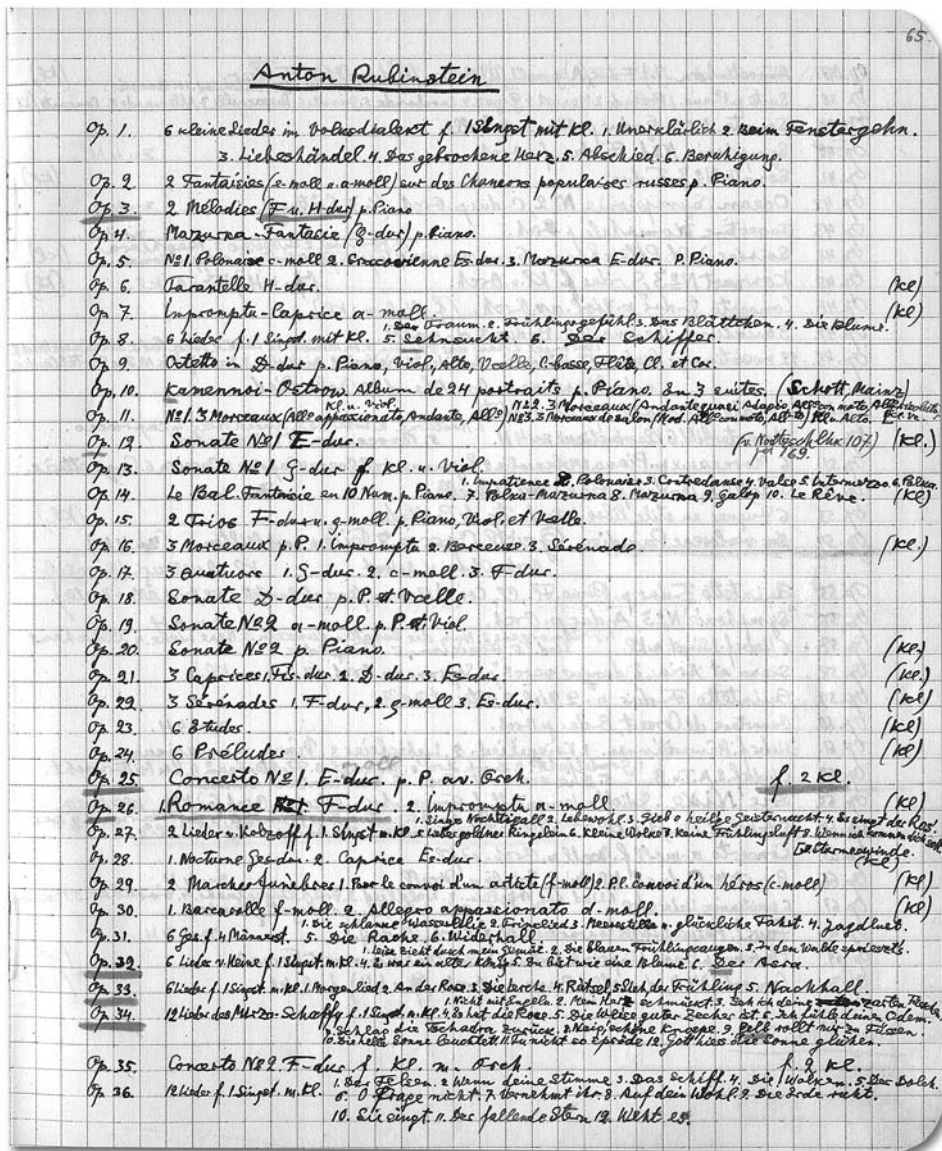 65.
Anton Rubinstein
Op. 1. 6 kleine Lieder im Volksdialekt f. 1 Singst mit Kl. 1. Unerklärlich 2. Beim Fenstergehn.
3. Liebeshändel. 4. Das gebrochene Herz. 5. Abschied. 6. Beruhigung.
Op. 2 2 Fantaisies (e-moll u. a-moll) sur des Chansons populaires russes p. Piano.
Op. 3. 2 Mélodies (F u. H-dur) p. Piano
Op 4. Mazurka-Fantasie (G-dur) p. Piano.
Op. 5. №1. Polonaise c-moll 2. Cracovienne Es-dur. 3. Mazurka E-dur. P. Piano.
Op. 6 Tarantelle H-dur. (Kl)
Op 7. Impromptu-Caprice a-moll. (Kl)
1. Der Traum. 2. Frühlingsgefühl. 3. Das Blättchen. 4. Die Blume.
Op. 8 6 Lieder f. 1 Singst. mit Kl. 5. Sehnsucht. 6. Der Schiffer.
Op. 9 Octetto in D-dur p. Piano, Viol., Alto, Vcelle, C-basse, Flûte, Cl. et Cor.
Op. 10. Kamennoi-Ostrow. Album de 24 portraits p. Piano. En 3 suites. (Schott, Mainz)
Kl. u. Viol.
Op. 11. №1. 3 Morceaux (Allº appassionato, Andante, Allº) №2. 3 Morceaux (Andante quasi Adagio, Allº con moto, Allº) №3. 3 Morceaux de salon (Mod. Allº con moto, Allº) Kl. u. Alto.
Op. 12 Sonate №1 E-dur. (Kl.)
107) 169.
Op. 13. Sonate №1 G-dur f. Kl. u. Viol.
1. Impatience 2. Polonaise 3. Contredanse 4. Valse 5. Intermezzo. 6. Polka.
Op. 14. Le Bal. Fantaisie en 10 Num. p. Piano. 7. Polka-Mazurka 8. Mazurka 9. Galop 10. Le Rêve. (Kl)
Op. 15. 2 Trios F-dur u. g-moll. p. Piano, Viol. et Vcelle.
Op. 16. 3 Morceaux p. P. 1. Impromptu 2. Berceuse. 3. Sérénade. (Kl.)
Op. 17. 3 Quatuors 1. G-dur. 2. c-moll. 3. F-dur.
Op. 18. Sonate D-dur p. P. et Vcelle.
Op. 19. Sonate №2 a-moll p. P. et Viol.
Op. 20. Sonate №2 p. Piano. (Kl.)
Op. 21. 3 Caprices 1. Fis-dur. 2. D-dur. 3. Es-dur. (Kl.)
Op. 22. 3 Sérénades 1. F-dur, 2. g-moll 3. Es-dur. (Kl)
Op. 23. 6 Etudes. (Kl)
Op. 24. 6 Préludes. (Kl)
Op. 25 Concerto №1. E-dur. p. P. av. Orch. f. 2 Kl.
Op. 26. 1. Romance F-dur. 2. Impromptu a-moll. (Kl)
1. Singe Nachtigall 2. Lebewohl. 3. Zieh o heilge Geisternacht. 4. Es singt der Ros.
Op. 27. 2 Lieder v. Kolzoff f. 1 Singst m. Kl. 5. goldner Ringelein 6. Kleine Wolke 7. Keine Frühlingsluft 8. Wenn ich kommen dich seh
Sturmeswinde.
Op. 28. 1. Nocturne Ges-dur. 2. Caprice Es-dur. (Kl)
Op. 29. 2 Marches funèbres 1. Pour le convoi d'un artiste (f-moll) 2. P. l. convoi d'un héros (c-moll) (Kl)
Op. 30. 1. Barcarolle f-moll. 2. Allegro appassionato d-moll. (Kl)
1. Die schlanke Wasserlilie 2. Trinklied 3. Meeresstille u. glückliche Fahrt. 4. Jagdlust.
Op. 31. 6 Ges. f. 4 Männerst. 5. Die Rache. 6. Widerhall
1. Leise zieht durch mein Gemüt. 2. Die blauen Frühlingsaugen. 3. In dem Walde spriesst's.
Op. 32. 6 Lieder v. Heine f. 1 Singst. m. Kl. 4. Es war ein alter König 5. Du bist wie eine Blume. 6. Der Asra.
Op. 33. 6 Lieder f. 1 Singst. m. Kl. 1. Morgenlied 2. An der Rose. 3. Die Lerche. 4. Rätsel. der Frühling 5. Nachhall.
1. Nicht mit Engeln. 2. Mein Herz schmückt. 3. Seh ich deine zarten
Op. 34. 12 Lieder des Mirza-Schaffy f. 1 Singst. m. Kl. 4. Es hat die Rose. 5. Die Weise guter Zecher ist. 6. Ich fühle deinen Odem.
7. Schlag die Tschadra zurück. 8. Neig, schöne Knospe. 9. Gelb rollt mir zu Füssen.
10. Die helle Sonne leuchtet 11. Tu nicht so spröde 12. Gott hiess die Sonne glühen.
Op. 35. Concerto №2. F-dur f. Kl. m. Orch. f. 2 Kl.
1. Der Felsen. 2. Wenn deine Stimme 3. Das Schiff. 4. Die Wolken. 5. Der Dolch.
Op. 36. 12 Lieder f. 1 Singst. m. Kl. 6. O frage nicht. 7. Vernehmt ihr. 8. Auf dein Wohl. 9. Die Erde ruht.
10. Sie singt. 11. Der fallende Stern 12. Weht es.